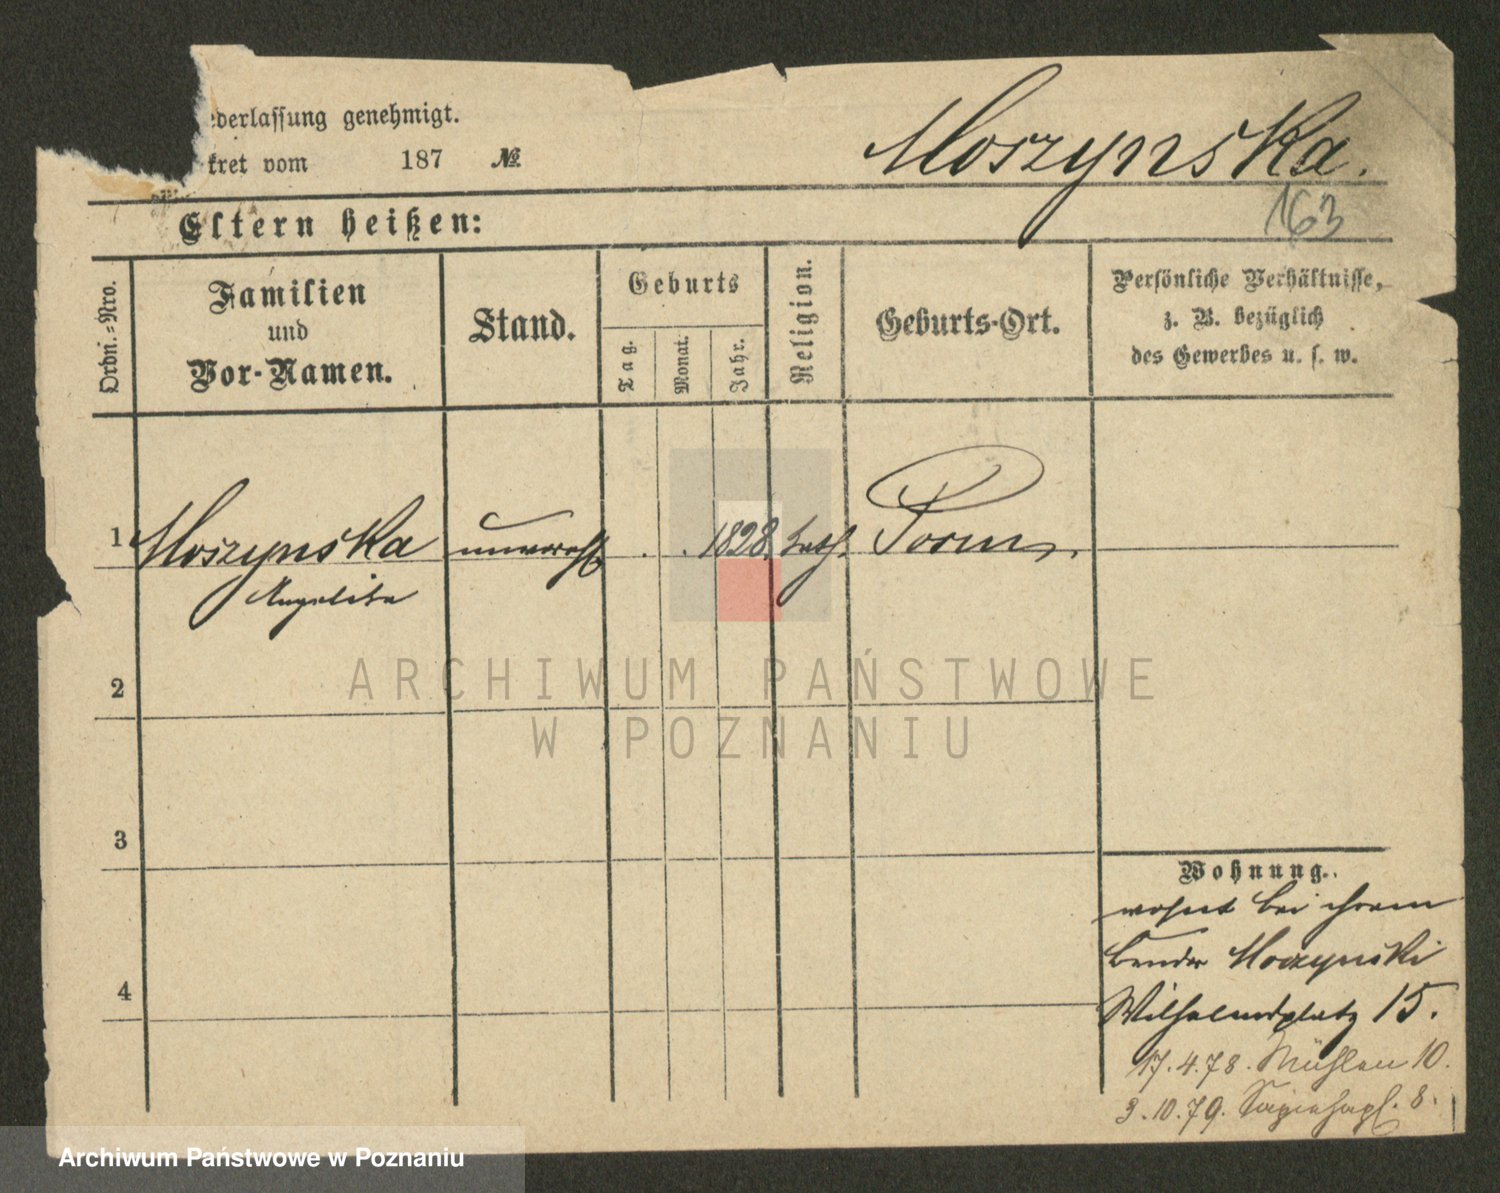 ederlassung genehmigt.
kret vom 187 №
Moszynska.
163
Eltern heißen:
Ordn.-Nro.
Familien
und
Vor-Namen.
Stand.
Geburts
Tag.
Monat.
Jahr.
Religion.
Geburts-Ort.
Persönliche Verhältnisse,
z. B. bezüglich
des Gewerbes u. s. w.
1 Moszynska unvereh . . 1828. kath. Posen.
Angelika
2
3
4
Wohnung.
wohnt bei ihrem
Bruder Moszynski
Wilhelmsplatz 15.
17.4.78. Mühlen 10.
3.10.79. Sapiehapl. 8.
ARCHIWUM PAŃSTWOWE
W POZNANIU
Archiwum Państwowe w Poznaniu